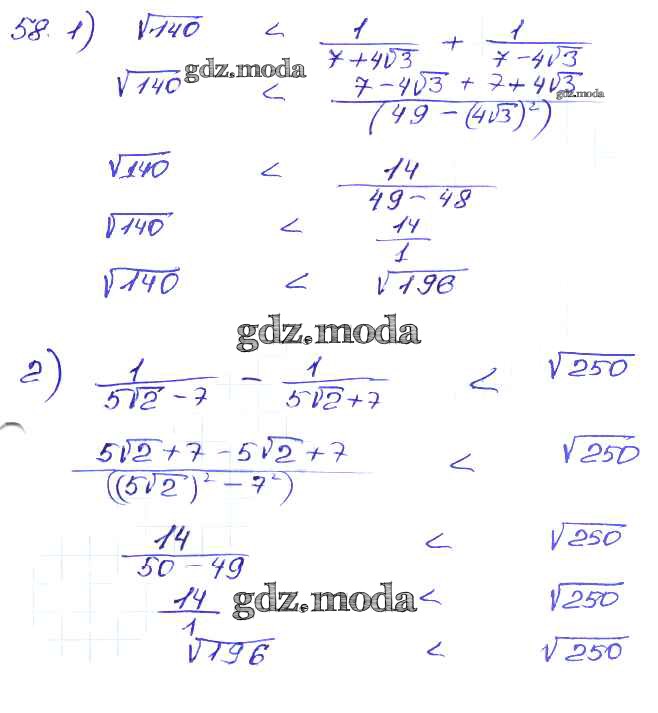 58. 1) √140 < 1/(7+4√3) + 1/(7-4√3)
gdz.moda
√140 < (7-4√3 + 7+4√3)/(49-(4√3)²)
gdz.moda
√140 < 14/(49-48)
√140 < 14/1
√140 < √196
gdz.moda
2) 1/(5√2-7) - 1/(5√2+7) < √250
(5√2+7-5√2+7)/((5√2)²-7²) < √250
14/(50-49) < √250
14/1 < √250
gdz.moda
√196 < √250